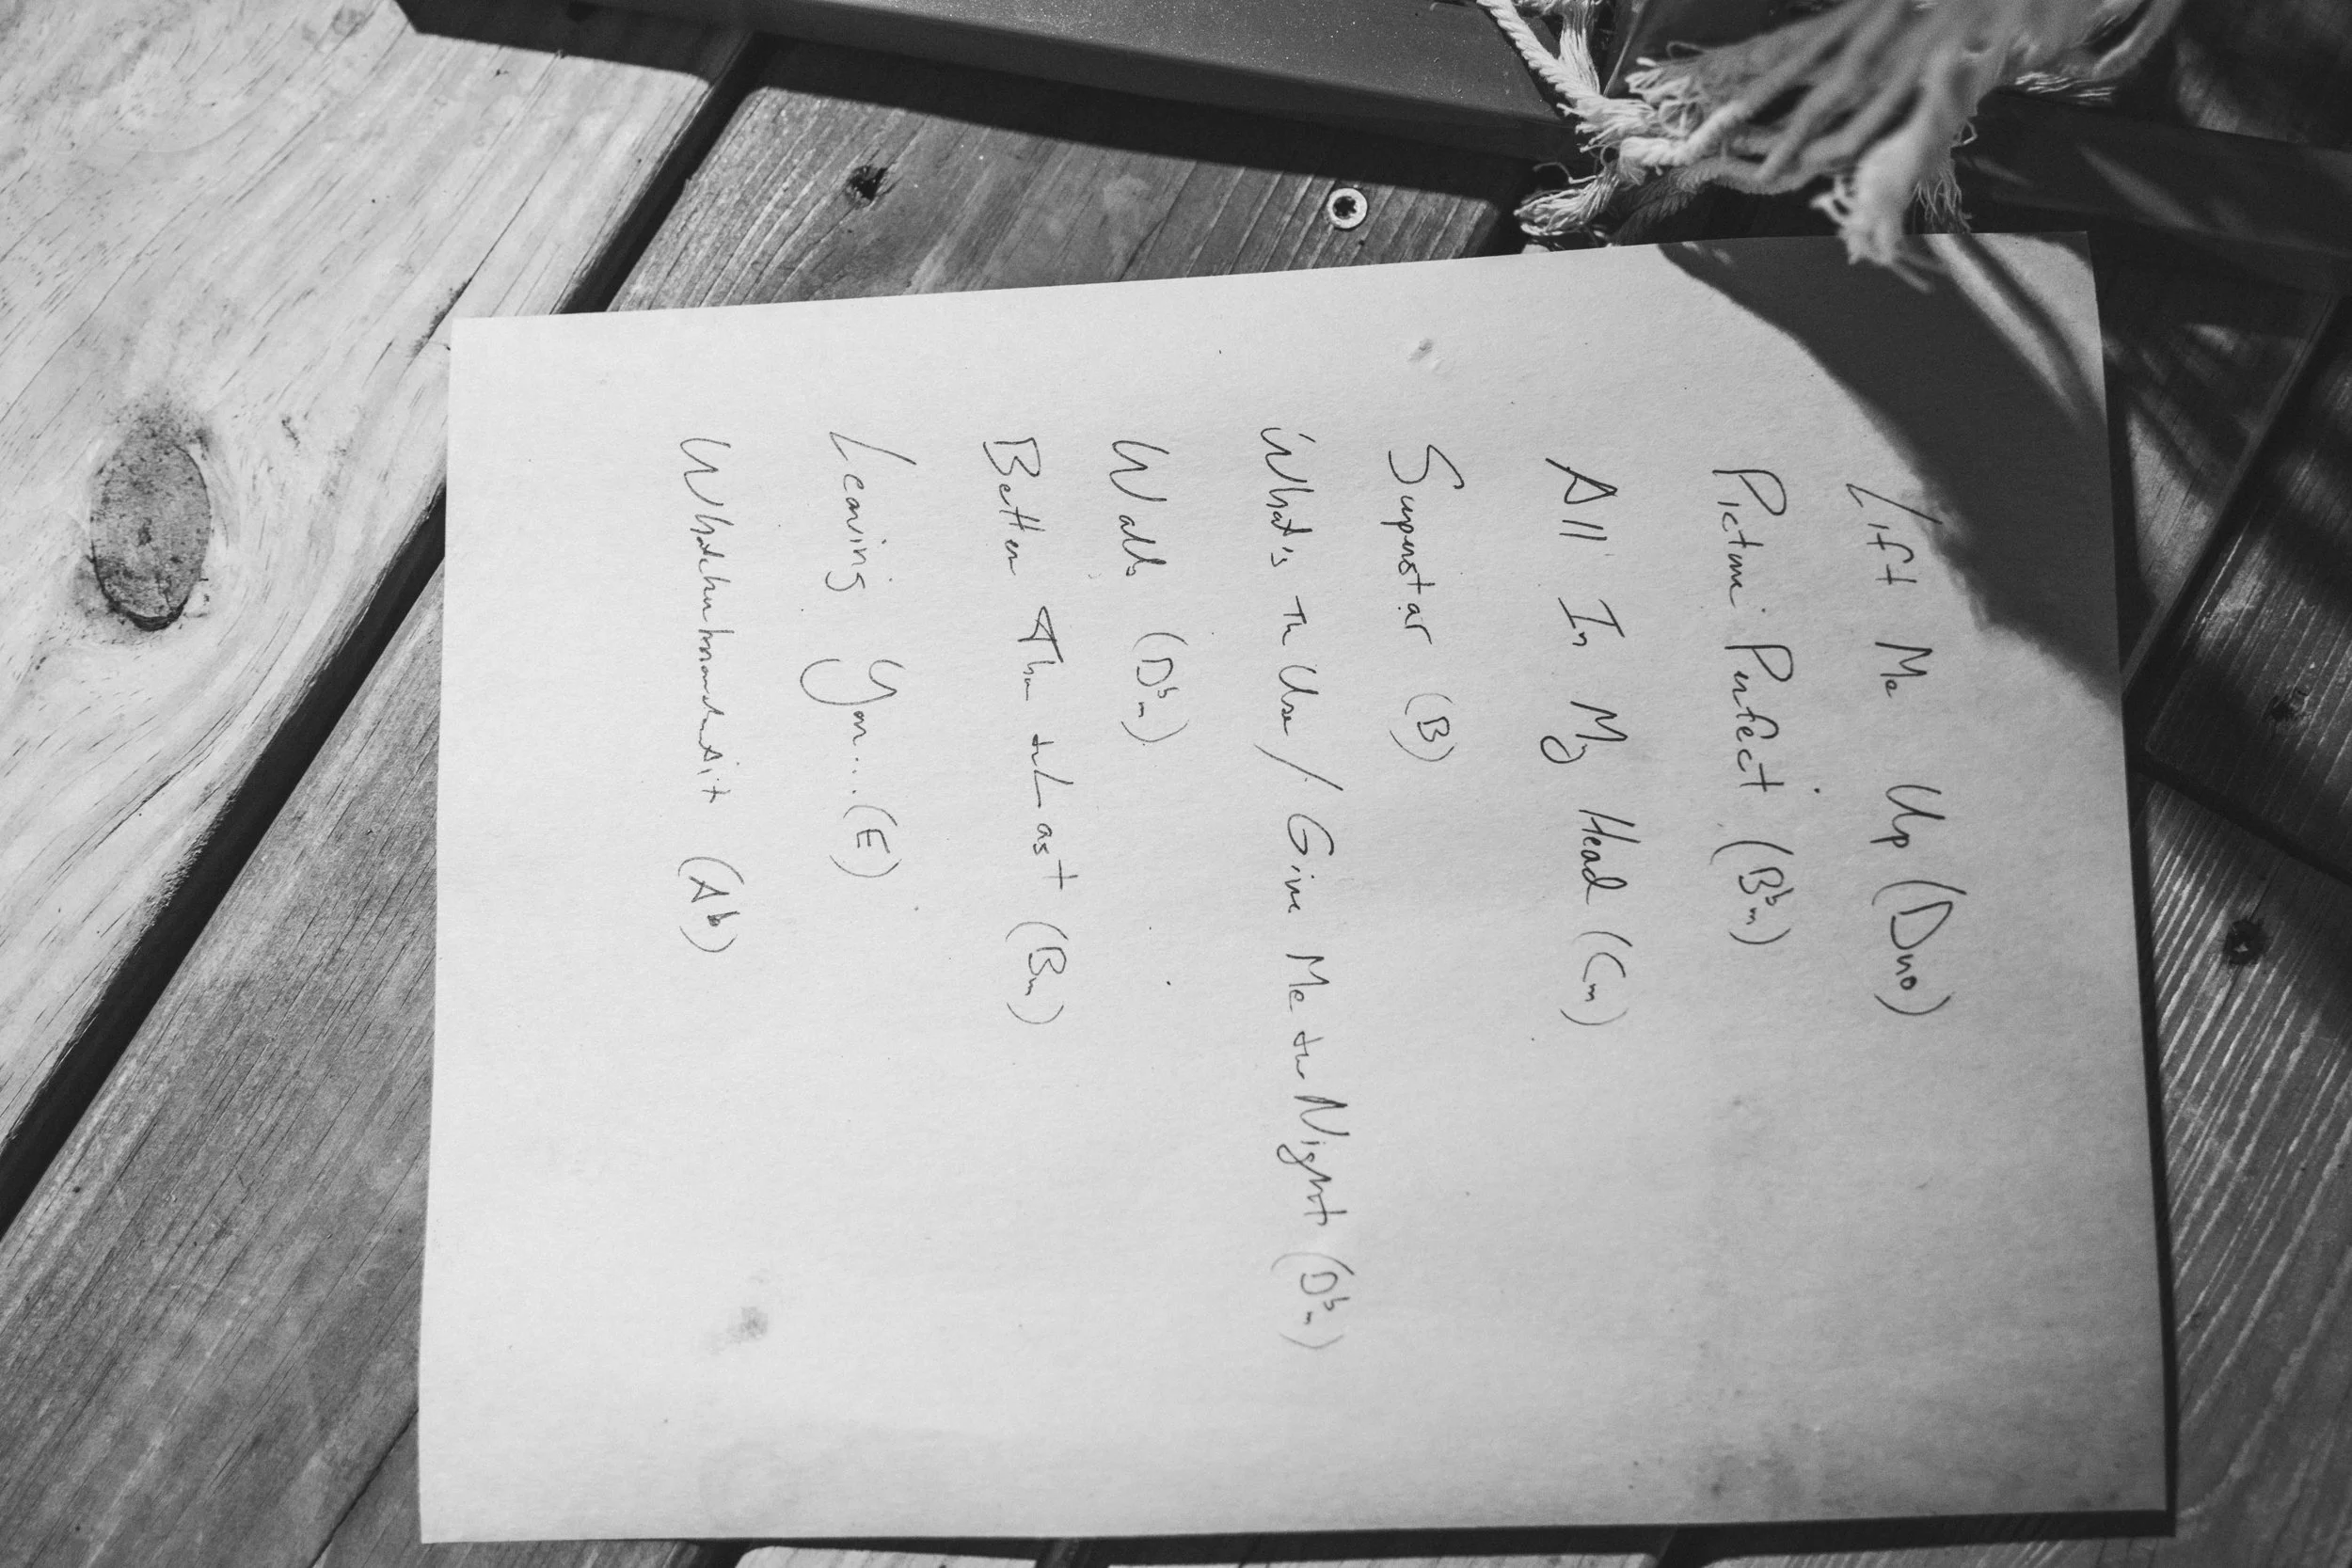 Lift Me Up (Duo)
Picture Perfect (Bbm)
All In My Head (Cm)
Superstar (B)
What's The Use / Give Me the Night (Dbm)
Walls (Dbm)
Better Than the Last (Bm)
Leaving You... (E)
(Ab)